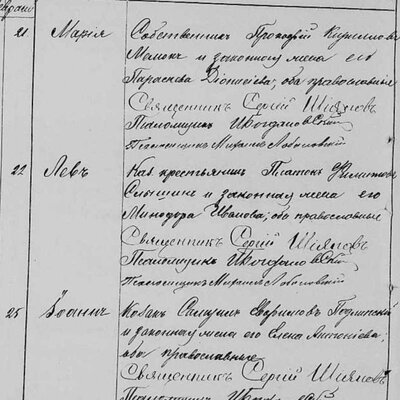 21 Марія Собственник Прокофій Кириллов
и законная жена его
Параскева Діонисіева, оба православныя
Священникъ Сергій Шіяновъ
Псаломщик И Богдановскій
Псаломщикъ Михаил Лобаловскій
22 Левъ Каз. крестьянинъ Платонъ Филиппов
и законная жена его
Минодора Иванова, оба православные
Священникъ Сергій Шіяновъ
Псаломщик И Богдановскій
Псаломщикъ Михаил Лобаловскій
25 Іоаннъ Козак Самуил
и законная жена его Елена Антоніева,
оба православные
Священникъ Сергій Шіяновъ
Псаломщик